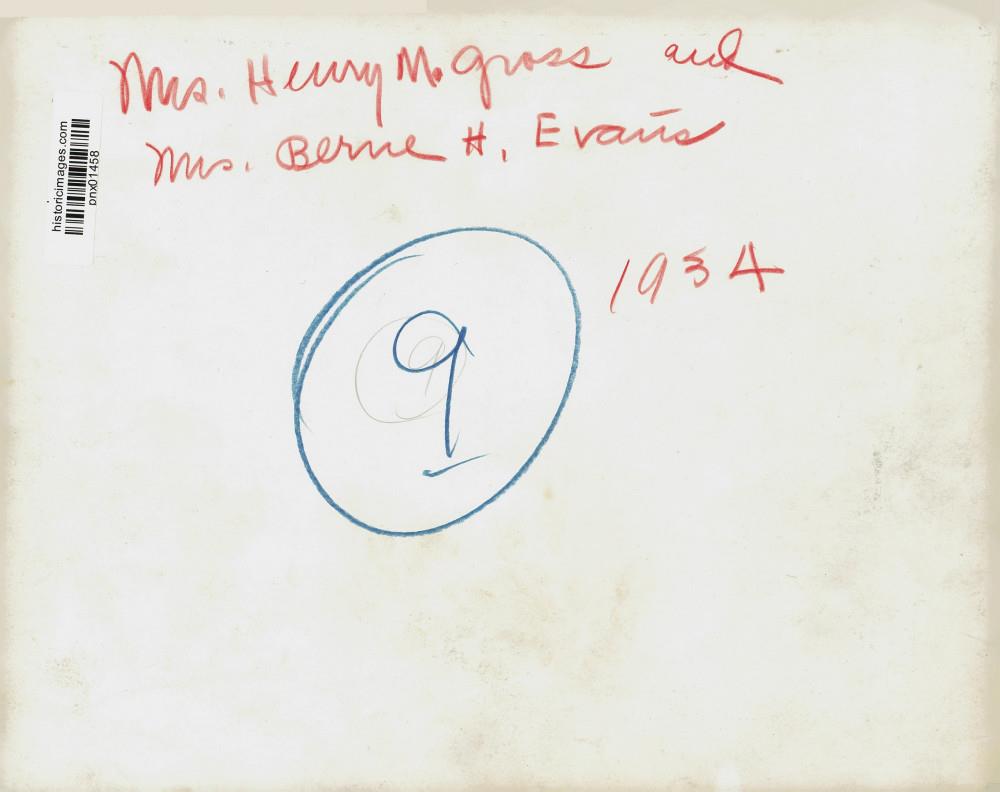 Mrs. Henry M. Gross and
Mrs. Berne H. Evans
historicimages.com
pnx01458
1934
9
9